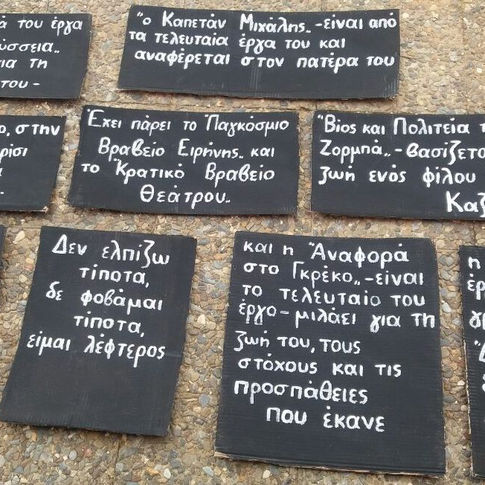 ά του έργα
ύσσεια„
ια τη
του -
"ο Καπετάν Μιχάλης„ -είναι από
τα τελευταία έργα του και
αναφέρεται στον πατέρα του
ο, στην
ρίσι
Έχει πάρει το "Παγκόσμιο
Βραβείο Ειρήνης„ και
το "Κρατικό Βραβείο
Θεάτρου„
"Βίος και Πολιτεία τ
Ζορμπά„ -βασίζετα
ζωή ενός φίλου
Καζ
Δεν ελπίζω
τίποτα,
δε φοβάμαι
τίποτα,
είμαι λέφτερος
και η "Αναφορά
στο Γκρέκο„ -είναι
το τελευταίο του
έργο- μιλάει για τη
ζωή του, τους
στόχους και τις
προσπάθειες
που έκανε
η
έρ